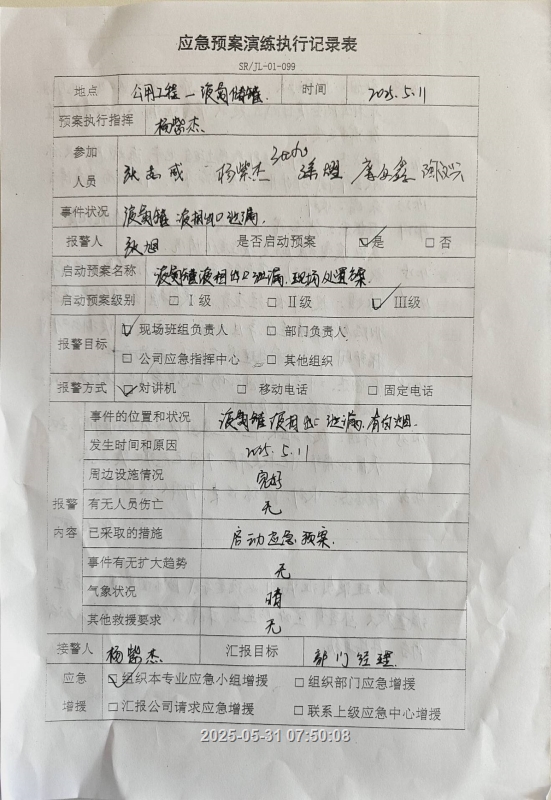 应急预案演练执行记录表
SR/JL-01-099
地点 公用工程—液氮储罐 时间 2025.5.11
预案执行指挥 杨紫杰
参加人员 张志威 杨紫杰
事件状况 液氮罐液相出口泄漏.
报警人 张旭 是否启动预案 ☑是 □否
启动预案名称 液氮罐液相出口泄漏.现场处置方案.
启动预案级别 □Ⅰ级 □Ⅱ级 ☑Ⅲ级
报警目标 ☑现场班组负责人 □部门负责人
□公司应急指挥中心 □其他组织
报警方式 ☑对讲机 □移动电话 □固定电话
报警内容
事件的位置和状况 液氮罐液相出口泄漏,有白烟.
发生时间和原因 2025.5.11
周边设施情况 完好
有无人员伤亡 无
已采取的措施 启动应急预案.
事件有无扩大趋势 无
气象状况 晴
其他救援要求 无
接警人 杨紫杰 汇报目标 部门经理.
应急增援 ☑组织本专业应急小组增援 □组织部门应急增援
□汇报公司请求应急增援 □联系上级应急中心增援
2025-05-31 07:50:08